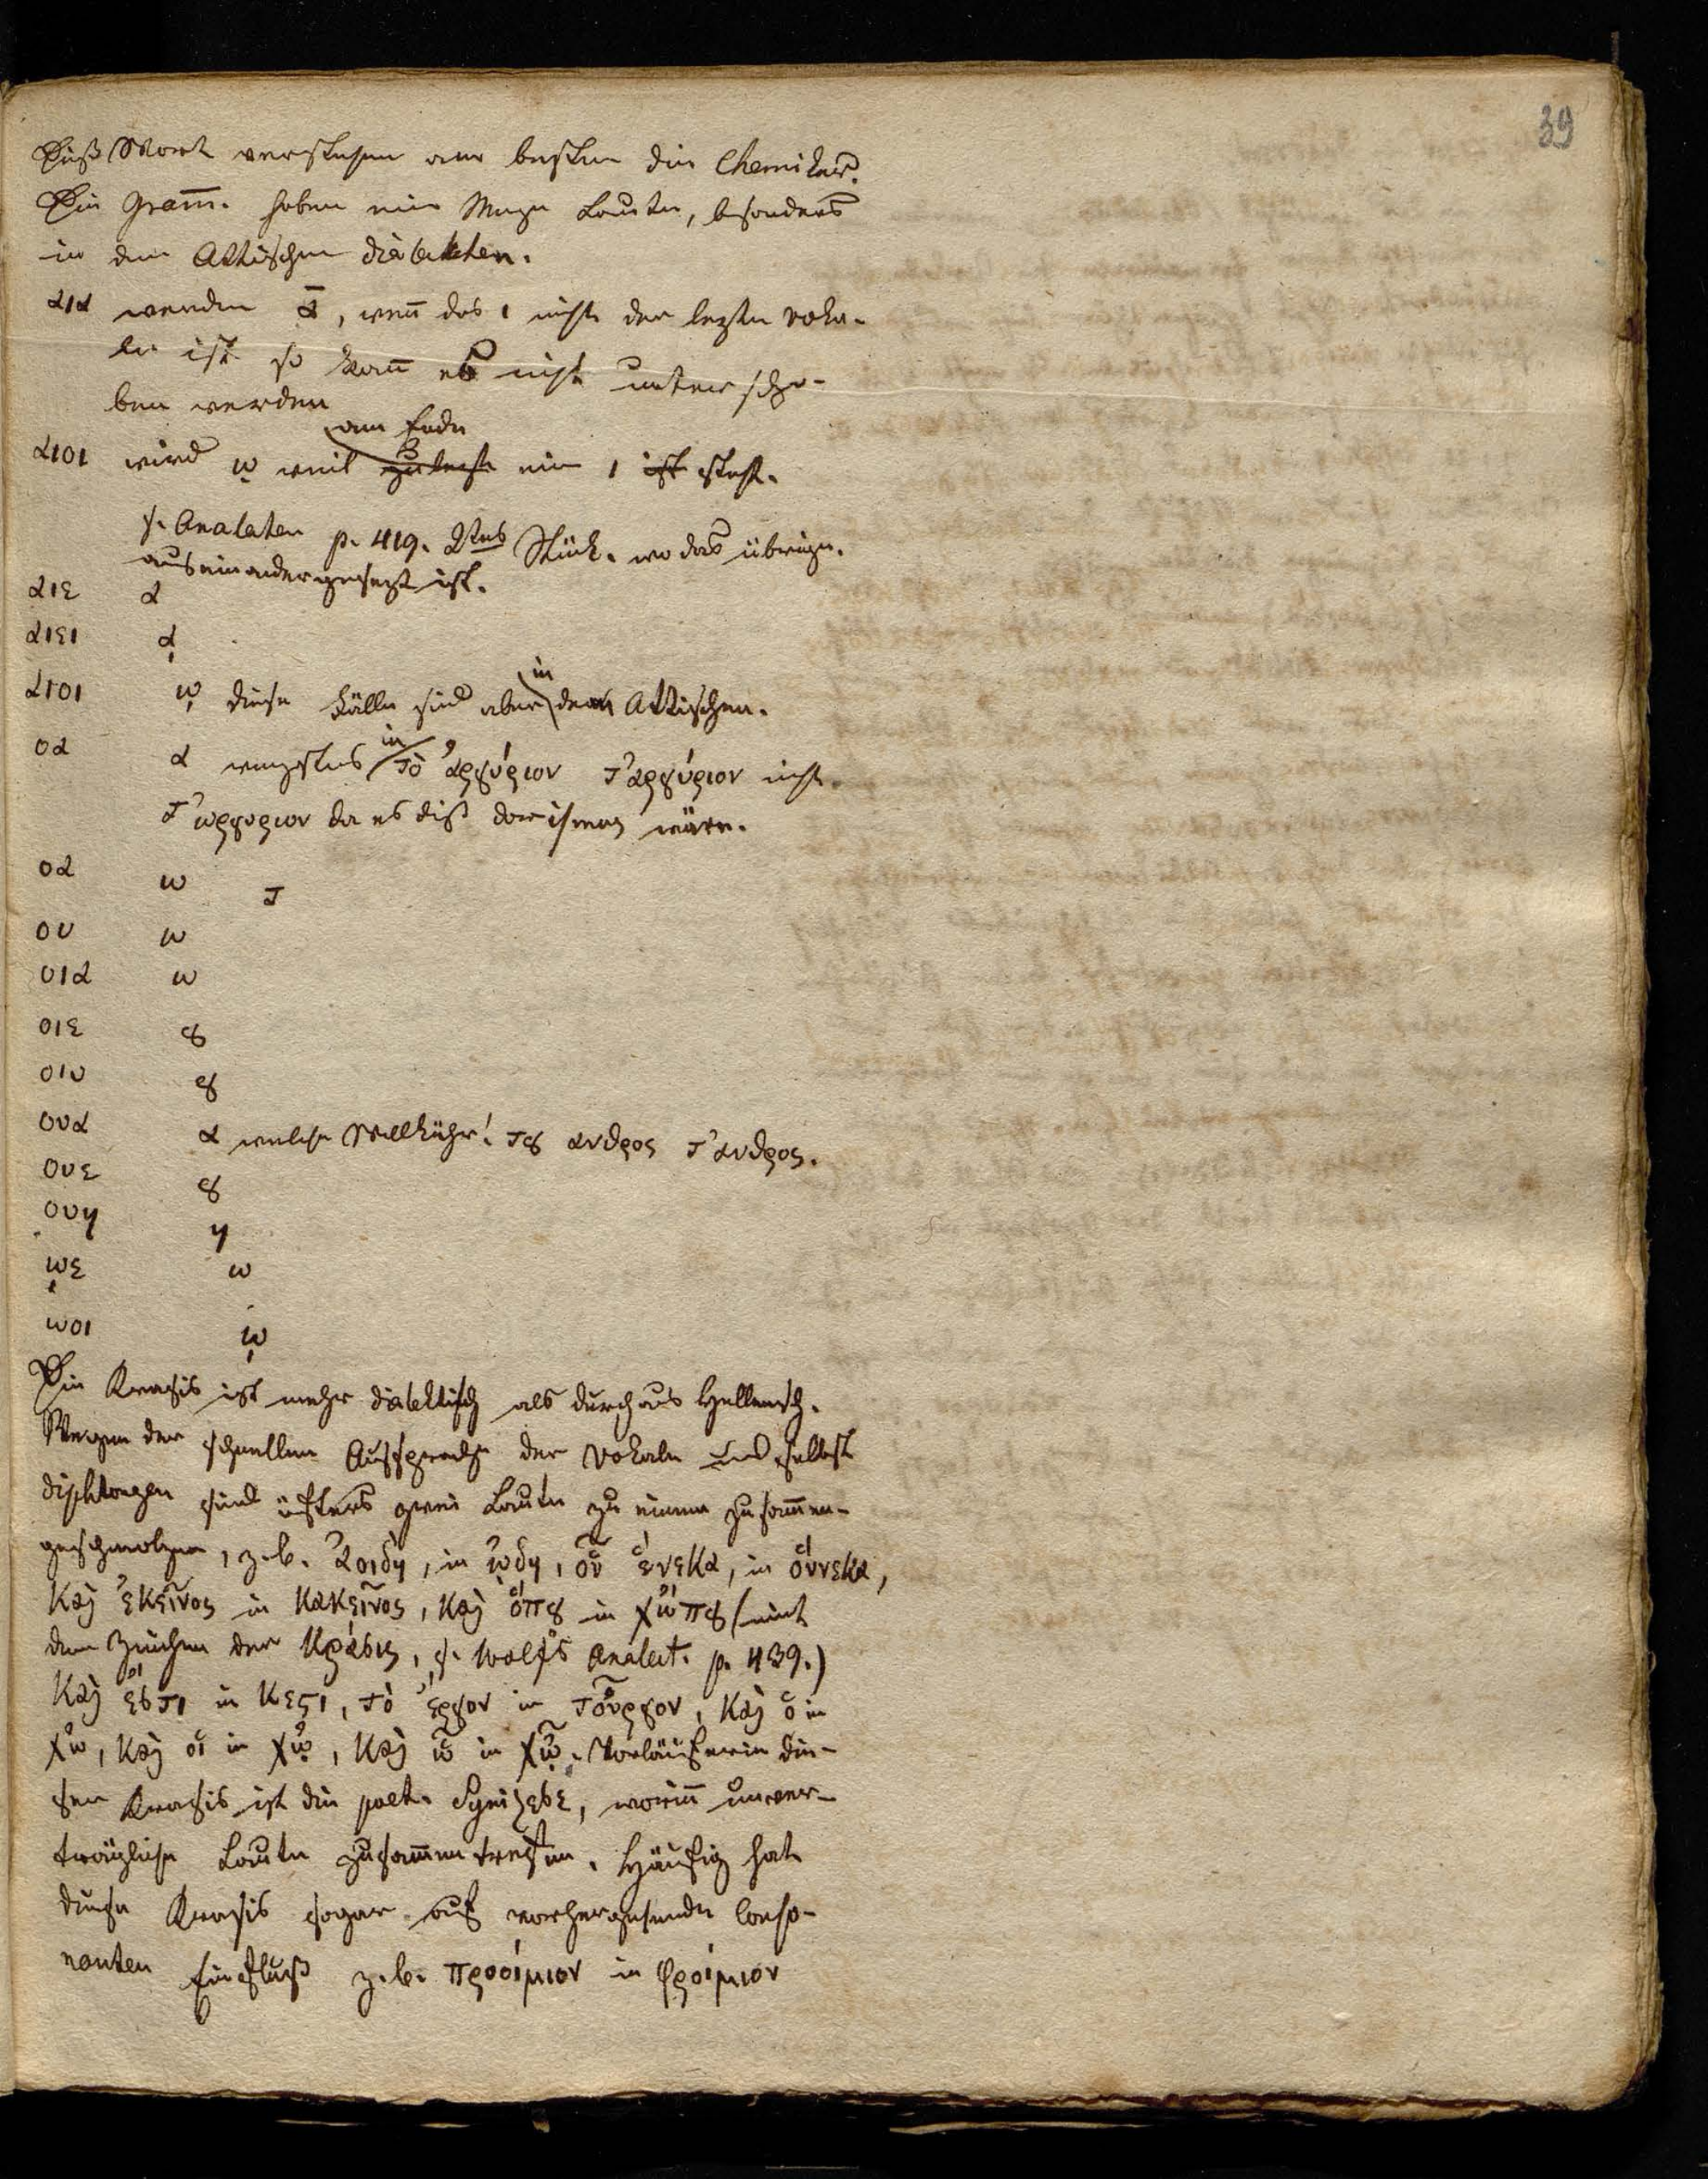 39
Diß Wort verstehen am besten die Chemiker.
Die Gram̄. haben eine Menge Laute, besonders
in dem Attischen dialekten.
αια werden ᾱ, weñ das ι nicht der lezte voka-
le ist so kañ es nicht unterschrie-
ben werden
am Ende
αιοι wird ῳ weil zulezt ein ι ist steht.
s. Analekten p. 419. 2tes Stück. wo das übrige
auseinandergesezt ist.
αιε α
αιει ᾳ
αιοι ῳ diese Fälle sind aber in dem Attischen.
οα α wenigstens in τὸ ἀργύριον τ'αργύριον nicht
τ'ωργυριον da es diß dorismus wäre.
οα ω τ
ου ω
οια ω
οιε ȣ
οιυ ȣ
ουα α welche Willkühr! τȣ ανδρος τ'ανδρος.
ουε ȣ
ουη η
ῳε ω
ωοι ῳ
Die Krasis ist mehr dialektisch als durchaus Hellenisch.
Wegen der schnellen Aussprache der Vokale und selbst
diphtongen sind öfters zwei Laute zu einem zusam̄en-
geschmolzen, z.b. ἀοιδη, in ᾠδη, οὗ ἕνεκα, in οὕνεκα,
καὶ ἐκεῖνος in κακεῖνος, καὶ ὅπȣ in χὤπȣ (mit
dem Zeichen der κράσις, s. Wolfs Analect. p. 439.)
καὶ ἔστι in κεϛι, τὸ ἔργον in τοὖργον, καὶ ὁ in
χὠ, καὶ οἱ in χᾠ, καὶ ᾧ in χᾦ. Vorläuferin die-
ser Krasis ist die poet. Synizese, woriñ unver-
trägliche Laute zusam̄entreffen. Häufig hat
diese Krasis sogar auf vorhergehende Conso-
nanten Einfluß z.b. προοίμιον in φροίμιον